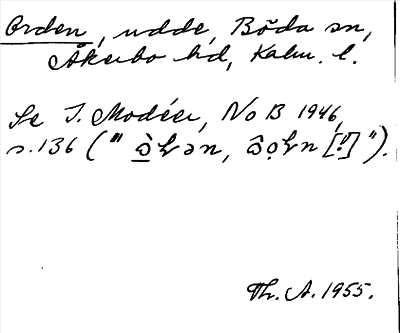 Orden, udde, Böda sn,
Åkerbo hd, Kalm. l.
Se I. Modéer, NoB 1946,
s. 136 ("
[!]").
Th. A. 1955.